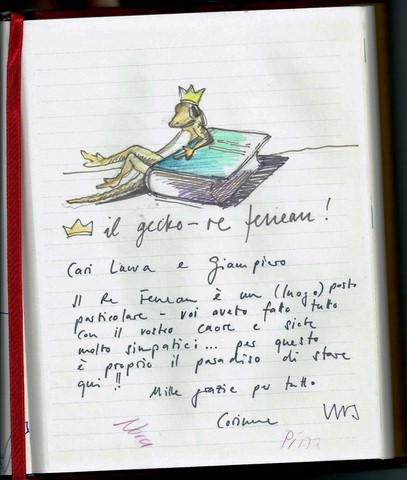 il gecko-re ferrean!
Cari Laura e Giampiero
Il Re Ferrean è un (luogo) posto
particolare - voi avete fato tuto
con il vostro cuore e siete
molto simpatici... per questo
è proprio il paradiso di stare
qui!!
Mille grazie per tutto
Corinne
Nora